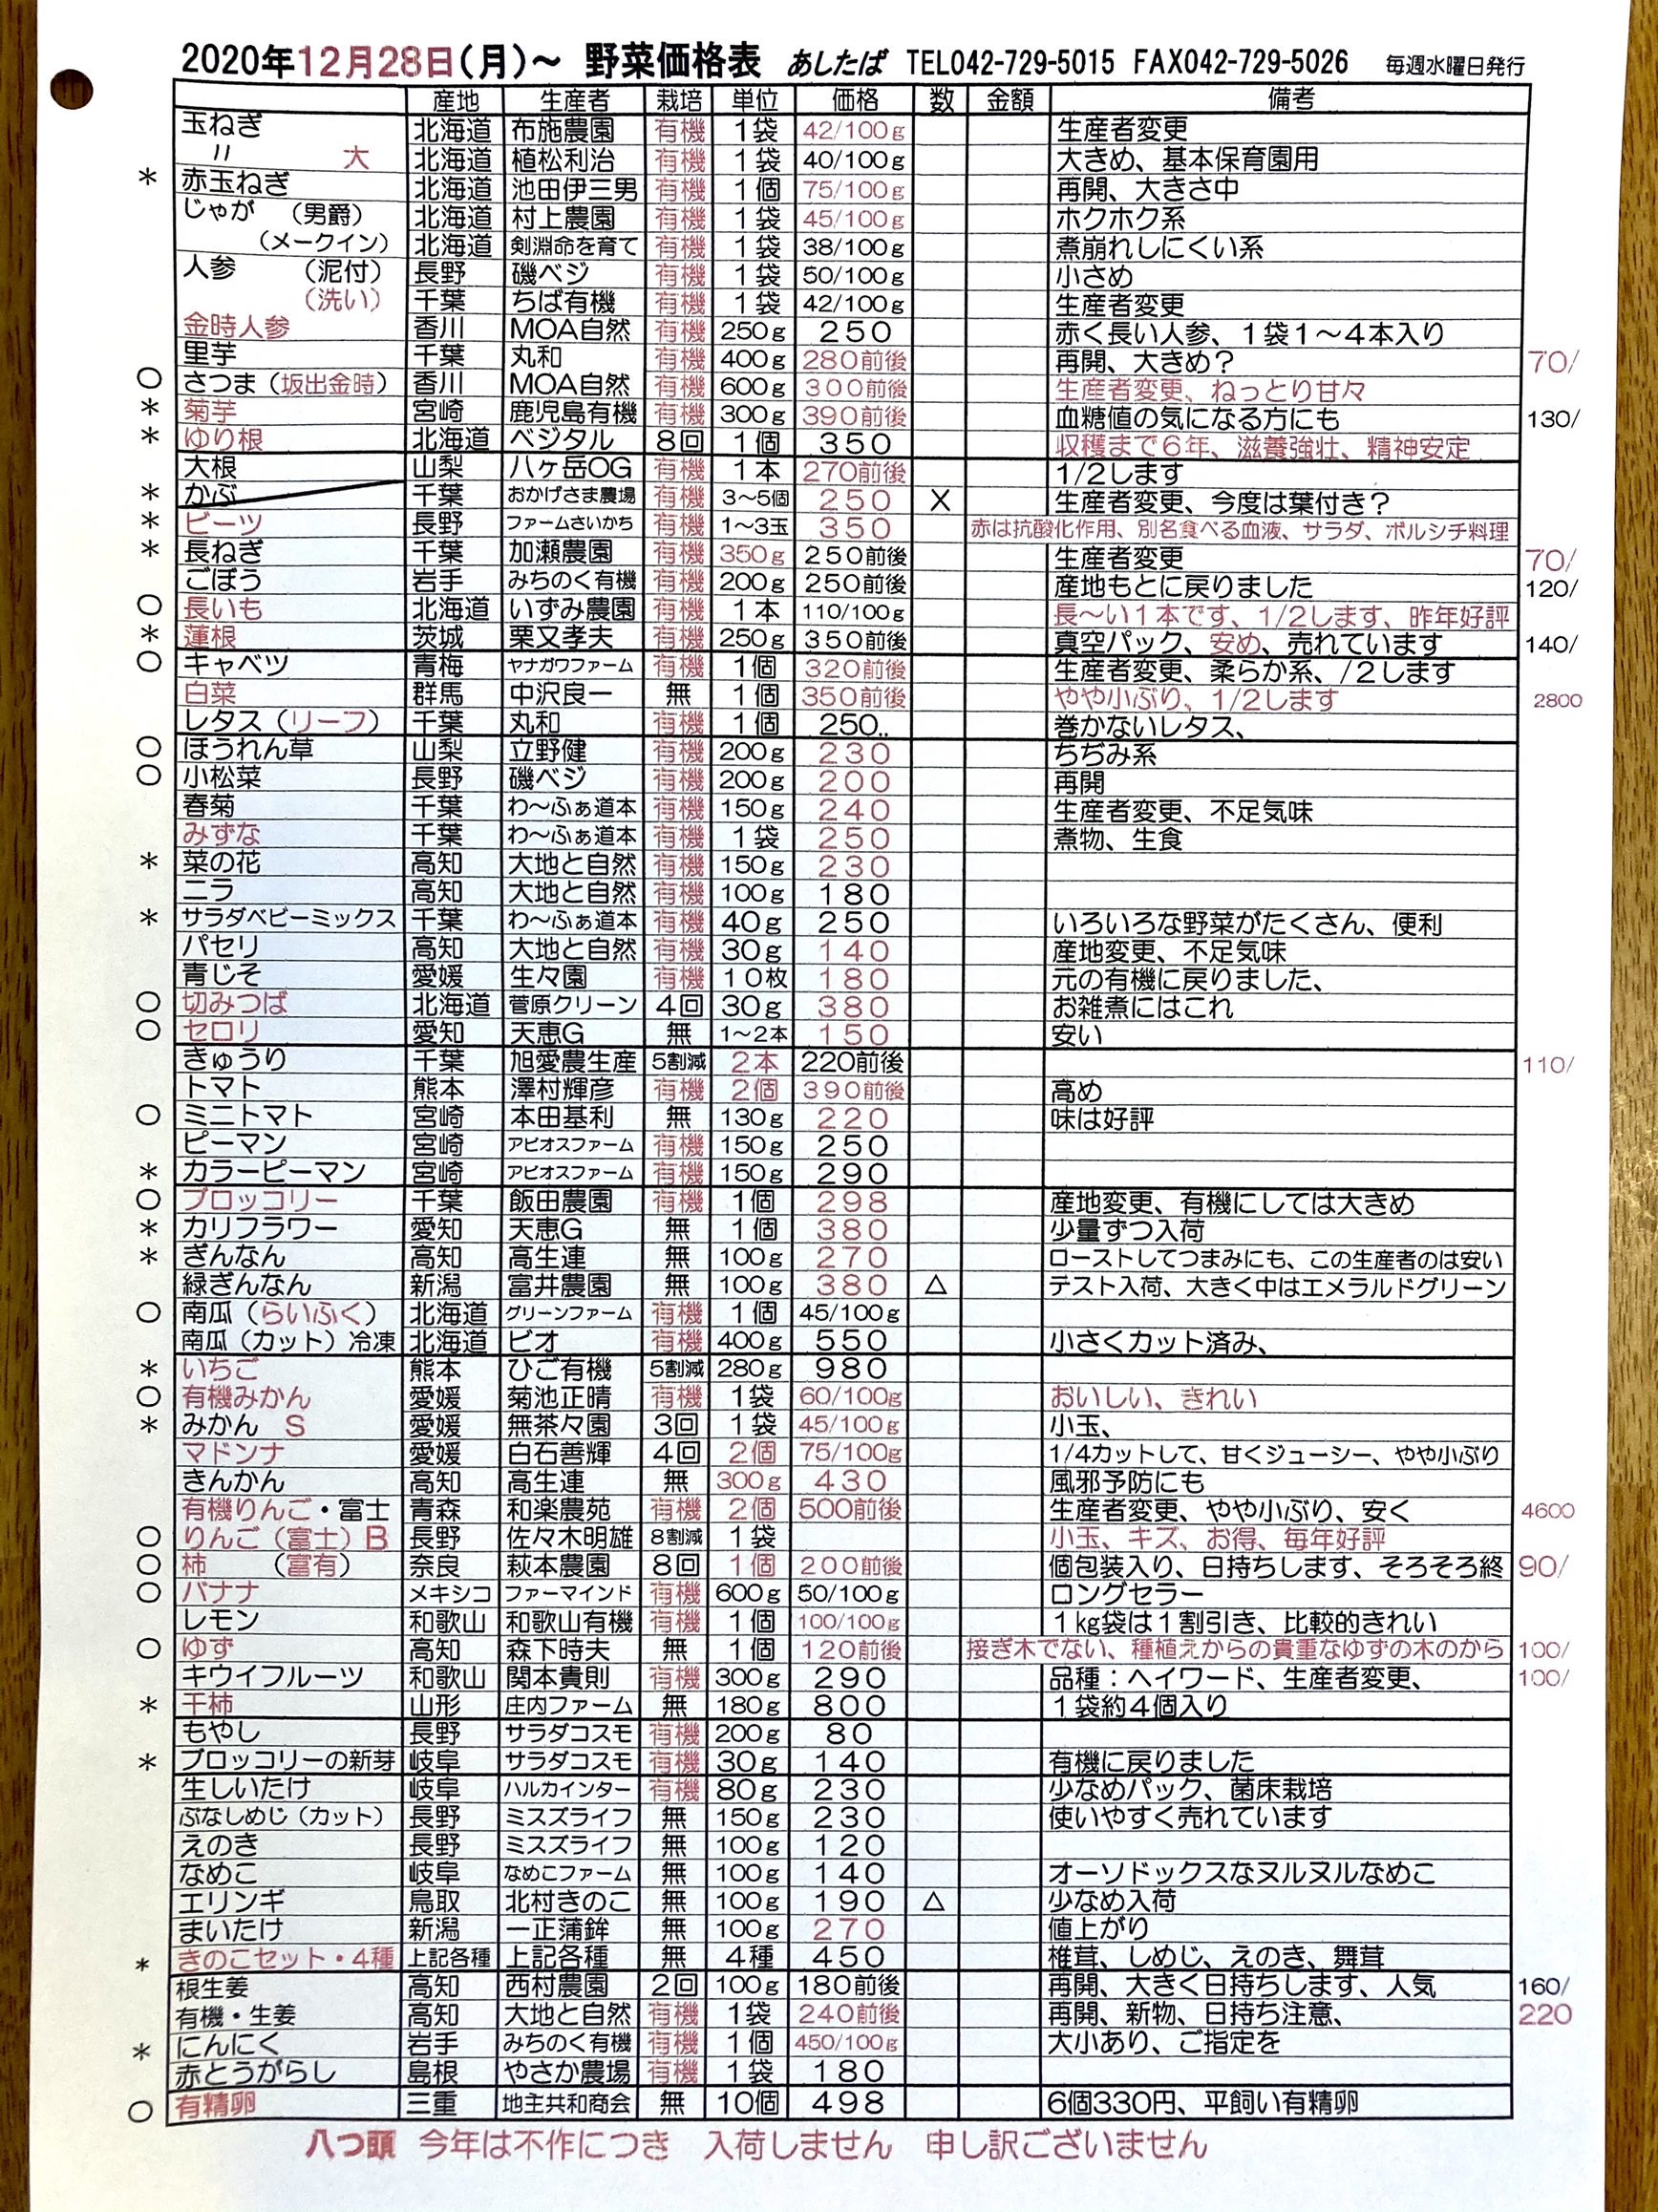 2020年12月28日(月)～ 野菜価格表 あしたば TEL042-729-5015 FAX042-729-5026 毎週水曜日発行
産地 生産者 栽培 単位 価格 数 金額 備考
玉ねぎ 北海道 布施農園 有機 1袋 42/100g 生産者変更
〃 大 北海道 植松利治 有機 1袋 40/100g 大きめ、基本保育園用
* 赤玉ねぎ 北海道 池田伊三男 有機 1個 75/100g 再開、大きさ中
じゃが (男爵) 北海道 村上農園 有機 1袋 45/100g ホクホク系
(メークイン) 北海道 剣淵命を育て 有機 1袋 38/100g 煮崩れしにくい系
人参 (泥付) 長野 磯ベジ 有機 1袋 50/100g 小さめ
(洗い) 千葉 ちば有機 有機 1袋 42/100g 生産者変更
金時人参 香川 MOA自然 有機 250g 250 赤く長い人参、1袋1～4本入り
里芋 千葉 丸和 有機 400g 280前後 再開、大きめ? 70/
○ さつま(坂出金時) 香川 MOA自然 有機 600g 300前後 生産者変更、ねっとり甘々
* 菊芋 宮崎 鹿児島有機 有機 300g 390前後 血糖値の気になる方にも 130/
* ゆり根 北海道 ベジタル 8回 1個 350 収穫まで6年、滋養強壮、精神安定
大根 山梨 八ヶ岳OG 有機 1本 270前後 1/2します
* かぶ 千葉 おかげさま農場 有機 3～5個 250 X 生産者変更、今度は葉付き?
* ビーツ 長野 ファームさいかち 有機 1～3玉 350 赤は抗酸化作用、別名食べる血液、サラダ、ボルシチ料理
* 長ねぎ 千葉 加瀬農園 有機 350g 250前後 生産者変更 70/
ごぼう 岩手 みちのく有機 有機 200g 250前後 産地もとに戻りました 120/
○ 長いも 北海道 いずみ農園 有機 1本 110/100g 長～い1本です、1/2します、昨年好評
* 蓮根 茨城 栗又孝夫 有機 250g 350前後 真空パック、安め、売れています 140/
○ キャベツ 青梅 ヤナガワファーム 有機 1個 320前後 生産者変更、柔らか系、/2します
白菜 群馬 中沢良一 無 1個 350前後 やや小ぶり、1/2します 2800
レタス(リーフ) 千葉 丸和 有機 1個 250.. 巻かないレタス、
○ ほうれん草 山梨 立野健 有機 200g 230 ちぢみ系
○ 小松菜 長野 磯ベジ 有機 200g 200 再開
春菊 千葉 わ～ふぁ道本 有機 150g 240 生産者変更、不足気味
みずな 千葉 わ～ふぁ道本 有機 1袋 250 煮物、生食
* 菜の花 高知 大地と自然 有機 150g 230
ニラ 高知 大地と自然 有機 100g 180
* サラダベビーミックス 千葉 わ～ふぁ道本 有機 40g 250 いろいろな野菜がたくさん、便利
パセリ 高知 大地と自然 有機 30g 140 産地変更、不足気味
青じそ 愛媛 生々園 有機 10枚 180 元の有機に戻りました、
○ 切みつば 北海道 菅原クリーン 4回 30g 380 お雑煮にはこれ
○ セロリ 愛知 天恵G 無 1～2本 150 安い
きゅうり 千葉 旭愛農生産 5割減 2本 220前後 110/
トマト 熊本 澤村輝彦 有機 2個 390前後 高め
○ ミニトマト 宮崎 本田基利 無 130g 220 味は好評
ピーマン 宮崎 アビオスファーム 有機 150g 250
* カラーピーマン 宮崎 アビオスファーム 有機 150g 290
○ ブロッコリー 千葉 飯田農園 有機 1個 298 産地変更、有機にしては大きめ
* カリフラワー 愛知 天恵G 無 1個 380 少量ずつ入荷
* ぎんなん 高知 高生連 無 100g 270 ローストしてつまみにも、この生産者のは安い
緑ぎんなん 新潟 富井農園 無 100g 380 △ テスト入荷、大きく中はエメラルドグリーン
○ 南瓜(らいふく) 北海道 グリーンファーム 有機 1個 45/100g
南瓜(カット)冷凍 北海道 ビオ 有機 400g 550 小さくカット済み、
* いちご 熊本 ひご有機 5割減 280g 980
○ 有機みかん 愛媛 菊池正晴 有機 1袋 60/100g おいしい、きれい
* みかん S 愛媛 無茶々園 3回 1袋 45/100g 小玉、
マドンナ 愛媛 白石善輝 4回 2個 75/100g 1/4カットして、甘くジューシー、やや小ぶり
きんかん 高知 高生連 無 300g 430 風邪予防にも
有機りんご・富士 青森 和楽農苑 有機 2個 500前後 生産者変更、やや小ぶり、安く 4600
○ りんご(富士)B 長野 佐々木明雄 8割減 1袋 小玉、キズ、お得、毎年好評
○ 柿 (富有) 奈良 萩本農園 8回 1個 200前後 個包装入り、日持ちします、そろそろ終 90/
○ バナナ メキシコ ファーマインド 有機 600g 50/100g ロングセラー
レモン 和歌山 和歌山有機 有機 1個 100/100g 1kg袋は1割引き、比較的きれい
○ ゆず 高知 森下時夫 無 1個 120前後 接ぎ木でない、種植えからの貴重なゆずの木のから 100/
キウイフルーツ 和歌山 関本貴則 有機 300g 290 品種:ヘイワード、生産者変更、 100/
* 干柿 山形 庄内ファーム 無 180g 800 1袋約4個入り
もやし 長野 サラダコスモ 有機 200g 80
* ブロッコリーの新芽 岐阜 サラダコスモ 有機 30g 140 有機に戻りました
生しいたけ 岐阜 ハルカインター 有機 80g 230 少なめパック、菌床栽培
ぶなしめじ(カット) 長野 ミスズライフ 無 150g 230 使いやすく売れています
えのき 長野 ミスズライフ 無 100g 120
なめこ 岐阜 なめこファーム 無 100g 140 オーソドックスなヌルヌルなめこ
エリンギ 鳥取 北村きのこ 無 100g 190 △ 少なめ入荷
まいたけ 新潟 一正蒲鉾 無 100g 270 値上がり
* きのこセット・4種 上記各種 上記各種 無 4種 450 椎茸、しめじ、えのき、舞茸
根生姜 高知 西村農園 2回 100g 180前後 再開、大きく日持ちします、人気 160/
有機・生姜 高知 大地と自然 有機 1袋 240前後 再開、新物、日持ち注意、 220
* にんにく 岩手 みちのく有機 有機 1個 450/100g 大小あり、ご指定を
赤とうがらし 島根 やさか農場 有機 1袋 180
○ 有精卵 三重 地主共和商会 無 10個 498 6個330円、平飼い有精卵
八つ頭 今年は不作につき 入荷しません 申し訳ございません